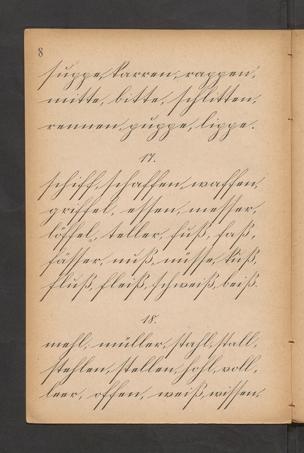 8
suppe, karren, rappen,
mitte, bitte, schlitten,
rennen, puppe, lippe.
17.
schiff, schaffen, waffen,
griffel, essen, messer,
löffel, teller, fuß, faß,
fässer, nuß, nüsse, kuß,
fluß, fleiß, schweiß, beiß.
18.
mehl, müller, stahl, stall,
stehlen, stellen, hohl, voll,
leer, offen, weiß, wissen,